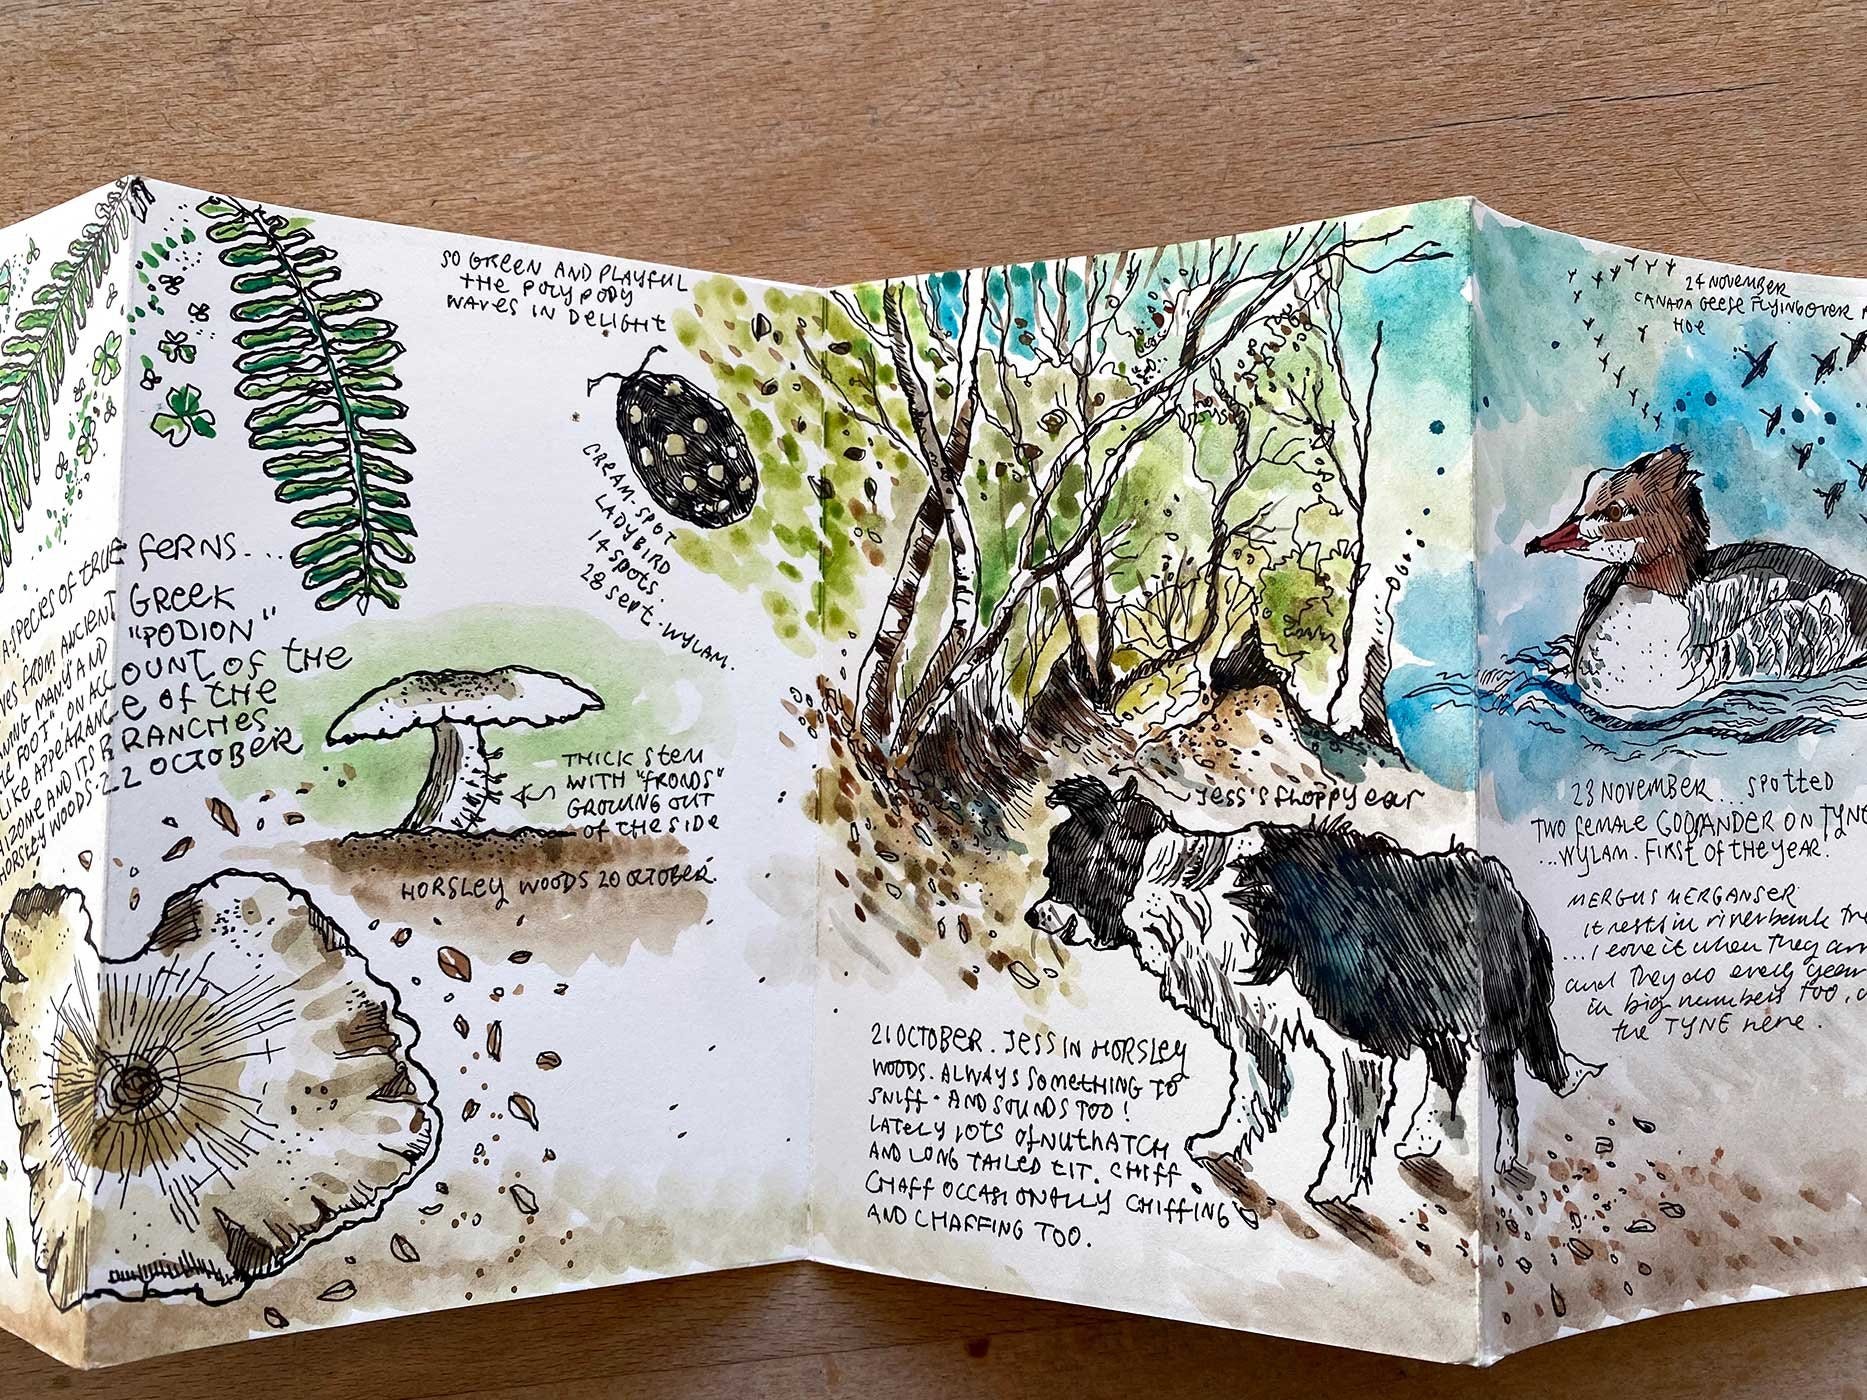 SO GREEN AND PLAYFUL
THE POLYPODY
WAVES IN DELIGHT
CREAM-SPOT
LADYBIRD
14 SPOTS.
28 Sept. WYLAM.
A SPECIES OF TRUE FERNS...
FROM ANCIENT GREEK
MANY AND "PODION"
FOOT". ON ACCOUNT OF THE
LIKE APPEARANCE OF THE
AND ITS BRANCHES.
HORSLEY WOODS. 22 OCTOBER
THICK STEM
WITH "FRONDS"
GROWING OUT
OF THE SIDE
HORSLEY WOODS 20 OCTOBER.
JESS'S FLOPPY EAR
21 OCTOBER. JESS IN HORSLEY
WOODS. ALWAYS SOMETHING TO
SNIFF. AND SOUNDS TOO!
LATELY LOTS OF NUTHATCH
AND LONG TAILED TIT. CHIFF
CHAFF OCCASIONALLY CHIFFING
AND CHAFFING TOO.
24 NOVEMBER
CANADA GEESE FLYING OVER
HOE
23 NOVEMBER... SPOTTED
TWO FEMALE GOOSANDER ON TYNE
...WYLAM. FIRST OF THE YEAR.
MERGUS MERGANSER
it nests in riverbank
...I love it when they
and they do every year
in big numbers too,
the TYNE here.